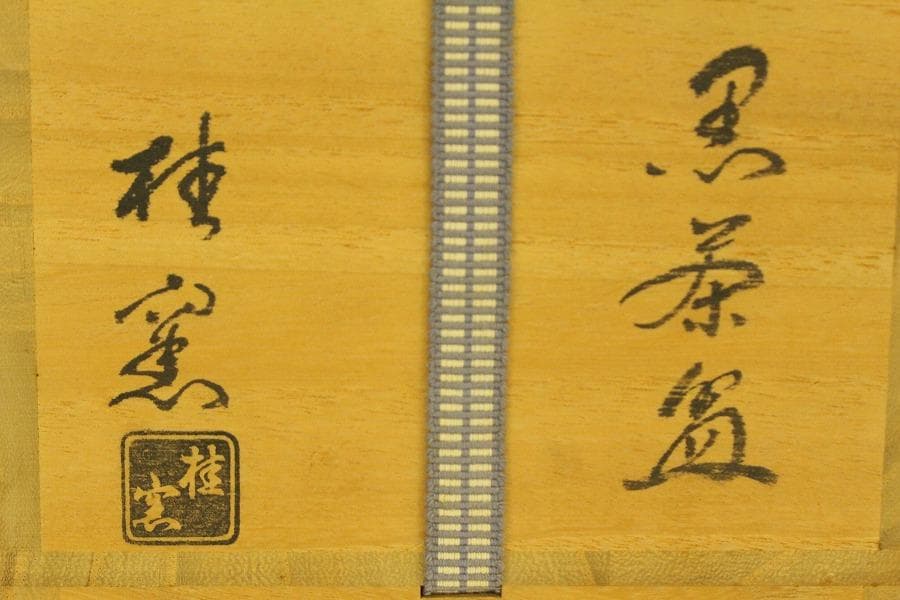 黒茶盌
桂窯
桂窯